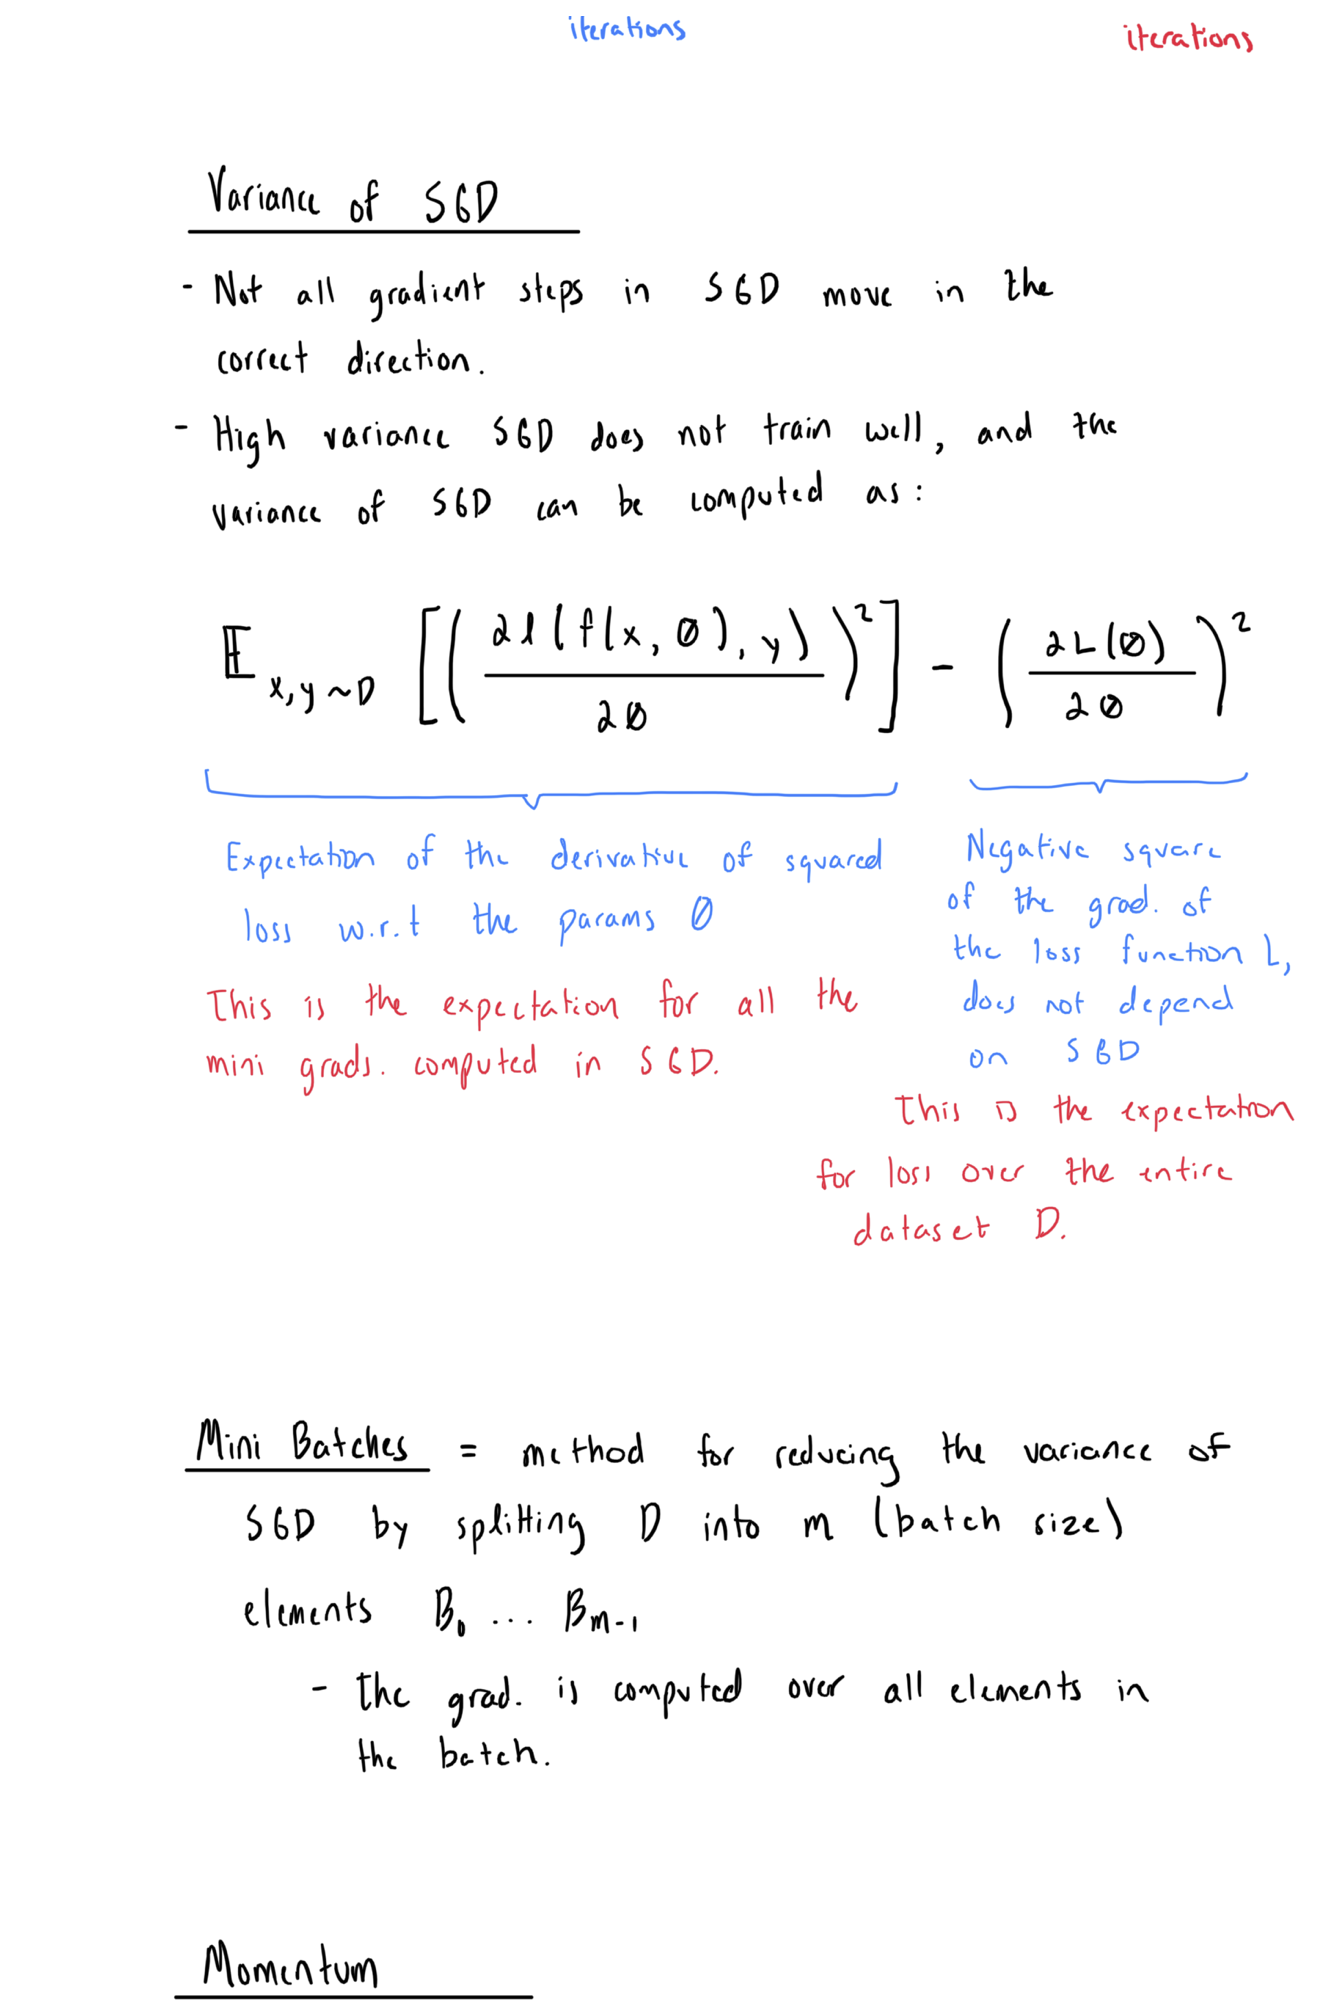 iterations iterations
Variance of SGD
- Not all gradient steps in SGD move in the
correct direction.
- High variance SGD does not train well, and the
variance of SGD can be computed as:
𝔼_{x,y~D} [(∂l(f(x, θ), y) / ∂θ)²] - (∂L(θ) / ∂θ)²
Expectation of the derivative of squared
loss w.r.t the params θ
This is the expectation for all the
mini grads. computed in SGD.
Negative square
of the grad. of
the loss function L,
does not depend
on SGD
This is the expectation
for loss over the entire
dataset D.
Mini Batches = method for reducing the variance of
SGD by splitting D into m (batch size)
elements B₀ ... B_{m-1}
- the grad. is computed over all elements in
the batch.
Momentum